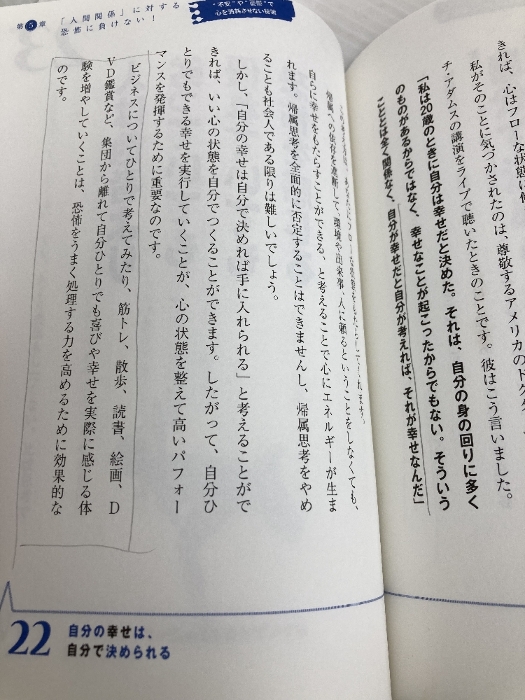 きれば、心はフローな状態に
私がそのことに気づかされたのは、尊敬するアメリカのドクタ
チ・アダムスの講演をライブで聴いたときのことです。彼はこう言いました。
「私は20歳のときに自分は幸せだと決めた。それは、自分の身の回りに多く
のものがあるからではなく、幸せなことが起こったからでもない。そういう
こととは全く関係なく、自分が幸せだと自分が考えれば、それが幸せなんだ」
第5章 「人間関係」に対する
恐怖に負けない！
で
心を消耗させない秘策
帰属への依存を遮断して、環境や出来事、人に頼るということをしなくても、
自らに幸せをもたらすことができる、と考えることで心にエネルギーが生ま
れます。帰属思考を全面的に否定することはできませんし、帰属思考をやめ
ることも社会人である限りは難しいでしょう。
しかし、「自分の幸せは自分で決めれば手に入れられる」と考えることがで
きれば、いい心の状態を自分でつくることができます。したがって、自分ひ
とりでもできる幸せを実行していくことが、心の状態を整えて高いパフォー
マンスを発揮するために重要なのです。
ビジネスについてひとりで考えてみたり、筋トレ、散歩、読書、絵画、D
VD鑑賞など、集団から離れて自分ひとりでも喜びや幸せを実際に感じる体
験を増やしていくことは、恐怖をうまく処理する力を高めるために効果的な
のです。
22 自分の幸せは、
自分で決められる